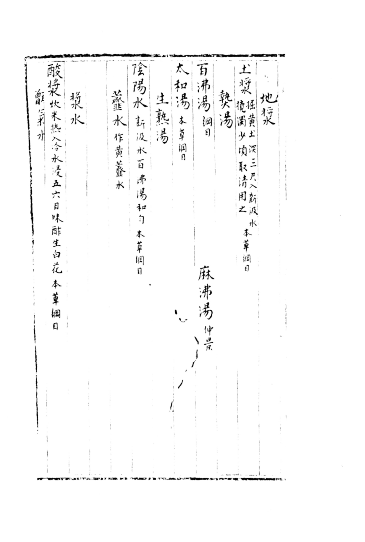 地漿
土漿 掘黃土深三尺入新汲水
攪濁少頃取清用之 本草綱目
熱湯
百沸湯 綱目 麻沸湯 仲景
太和湯 本草綱目
生熟湯
陰陽水 新汲水百沸湯和勻 本草綱目
虀水 作黃虀水
漿水
酸漿 炊米熱入冷水浸五六日味酢生白花 本草綱目
甑氣水